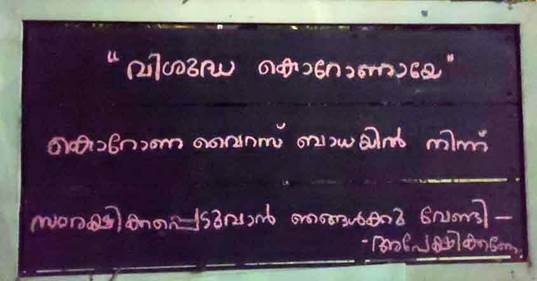 "വിശുദ്ധ കൊറോണായേ"
കൊറോണ വൈറസ് ബാധയിൽ നിന്ന്
സംരക്ഷിക്കപ്പെടുവാൻ ഞങ്ങൾക്കു വേണ്ടി -
- അപേക്ഷിക്കണേ.